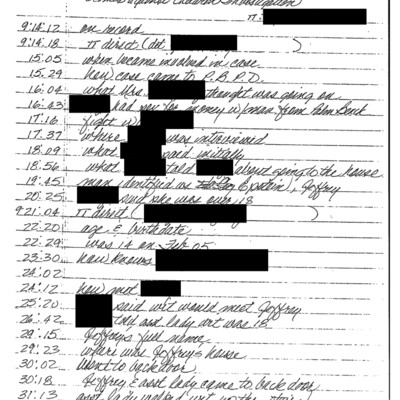 Crimes Against Children Investigation
π:
9:14:12 on record
9:14:18 π direct (det. )
15:05 when became involved in case
15:29 how case came to P.B.P.D.
16:04 what Mrs. thought was going on
16:43 had sex for money w/man from Palm Beach
17:16 fight w/
17:37 where was interviewed
18:09 what said initially
18:56 what told about going to the house
19:45 man identified as Epstein, Jeffrey
20:25 said she was over 18
9:21:04 π direct ( )
22:20 age & birthdate
22:29 was 14 on Feb 05
23:30 how knows
24:02
24:12 how met
25:20 said wit would meet Jeffrey
26:42 told asst lady wit was 18
29:15 Jeffrey's full name
29:23 where was Jeffrey's house
30:02 went to back door
30:18 Jeffrey & asst lady came to back door
31:13 asst lady walked wit up the stairs